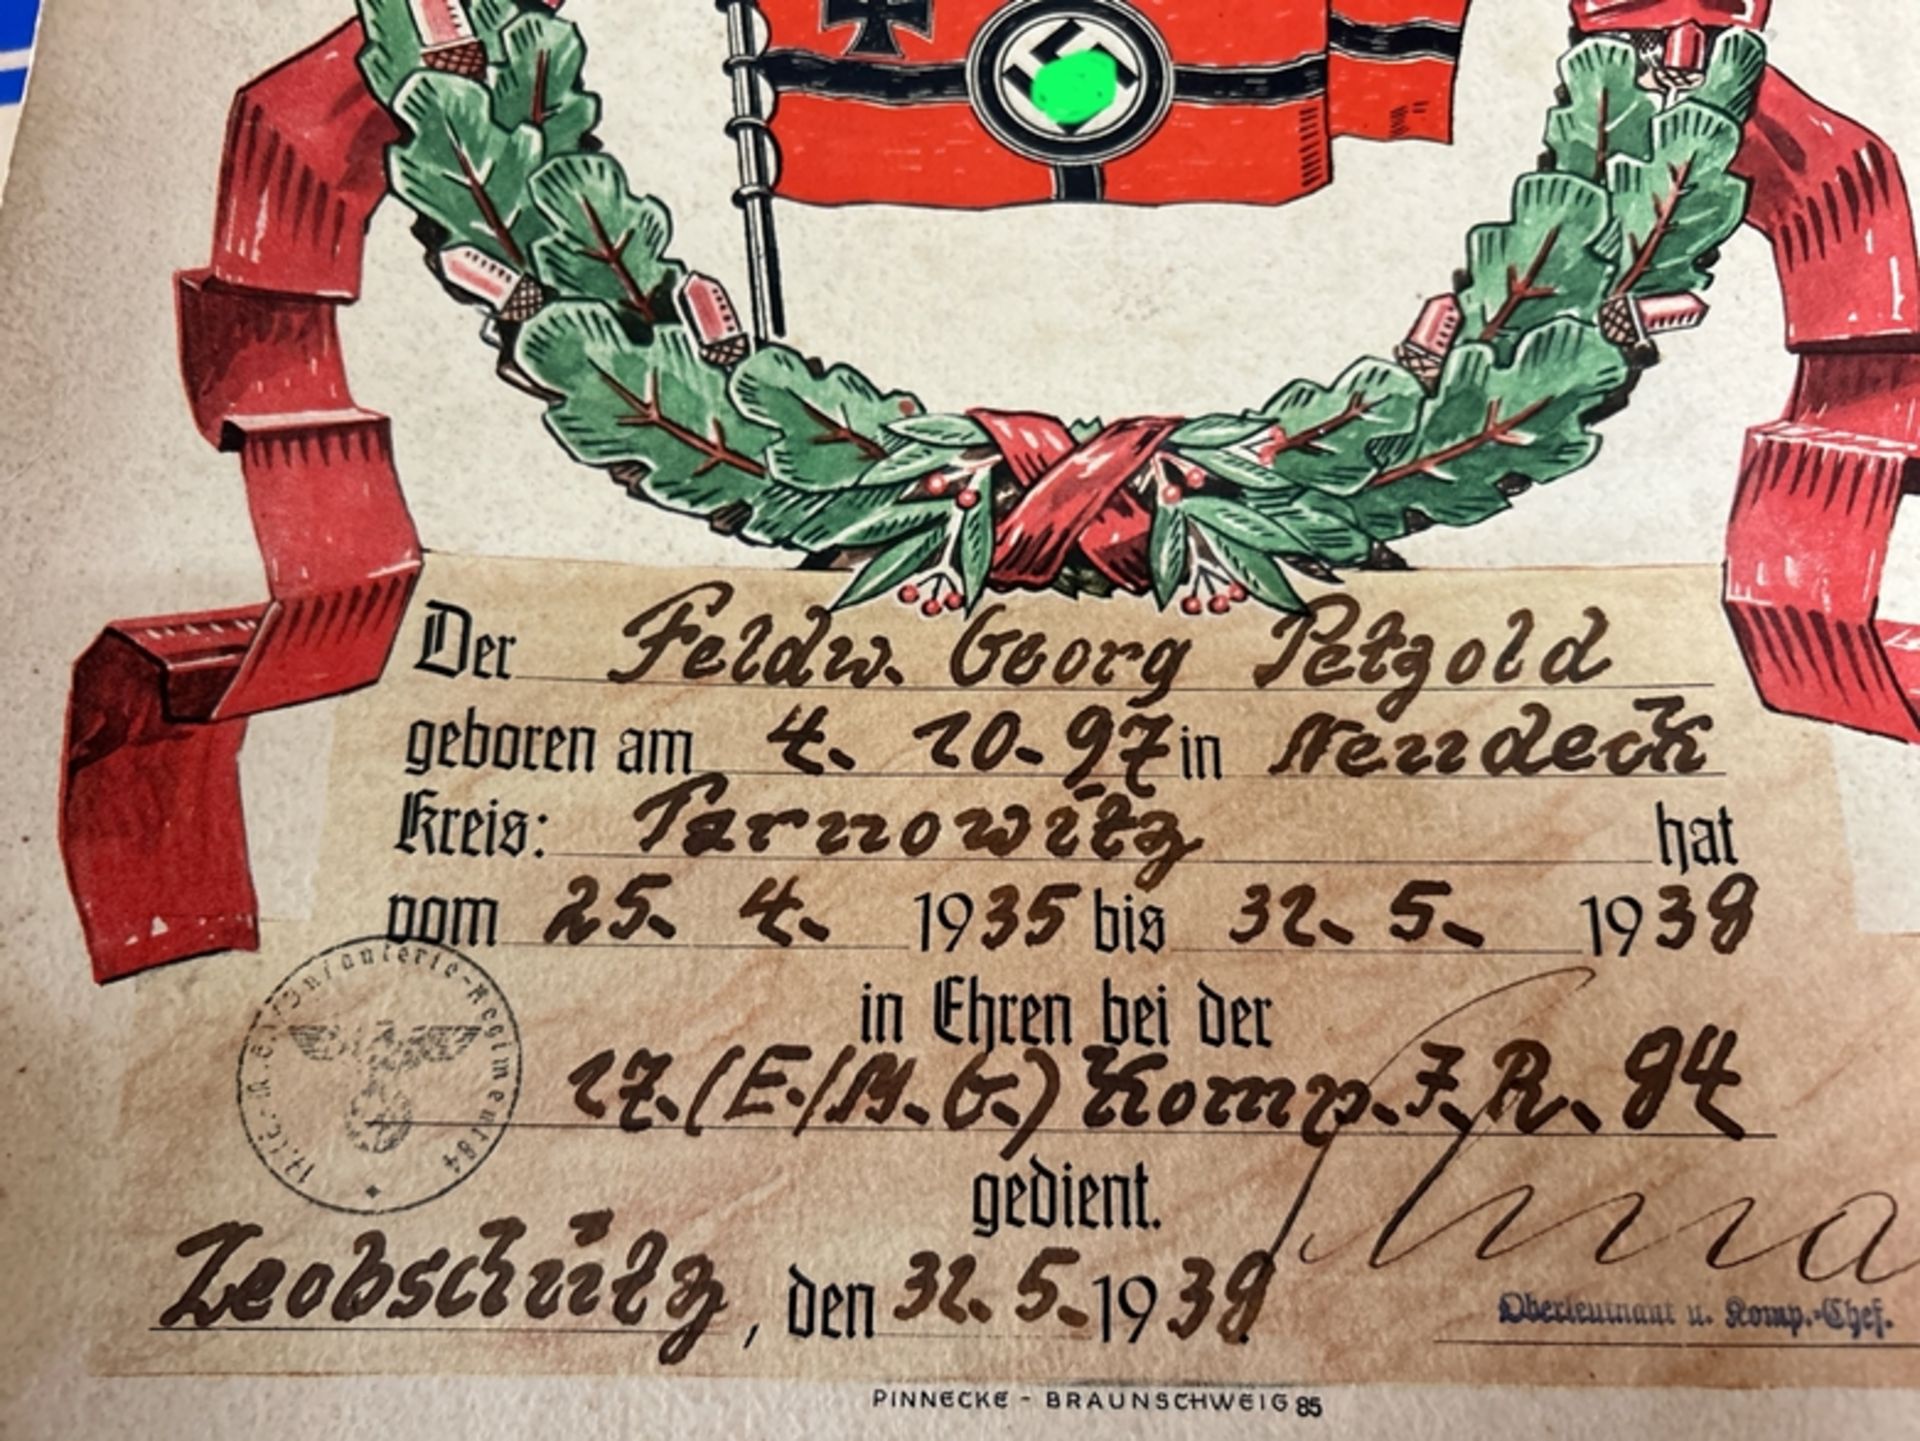 Der Feldw. Georg Petzold
geboren am 4. 10. 97 in Neudeck
Kreis: Tarnowitz hat
vom 25. 4. 1935 bis 31. 5. 1938
in Ehren bei der
17. (E./M.G.) Komp. I. R. 84
gedient.
Infanterie-Regiment 84
Leobschütz, den 31. 5. 1938
Oberleutnant u. Komp.-Chef.
PINNECKE - BRAUNSCHWEIG 85